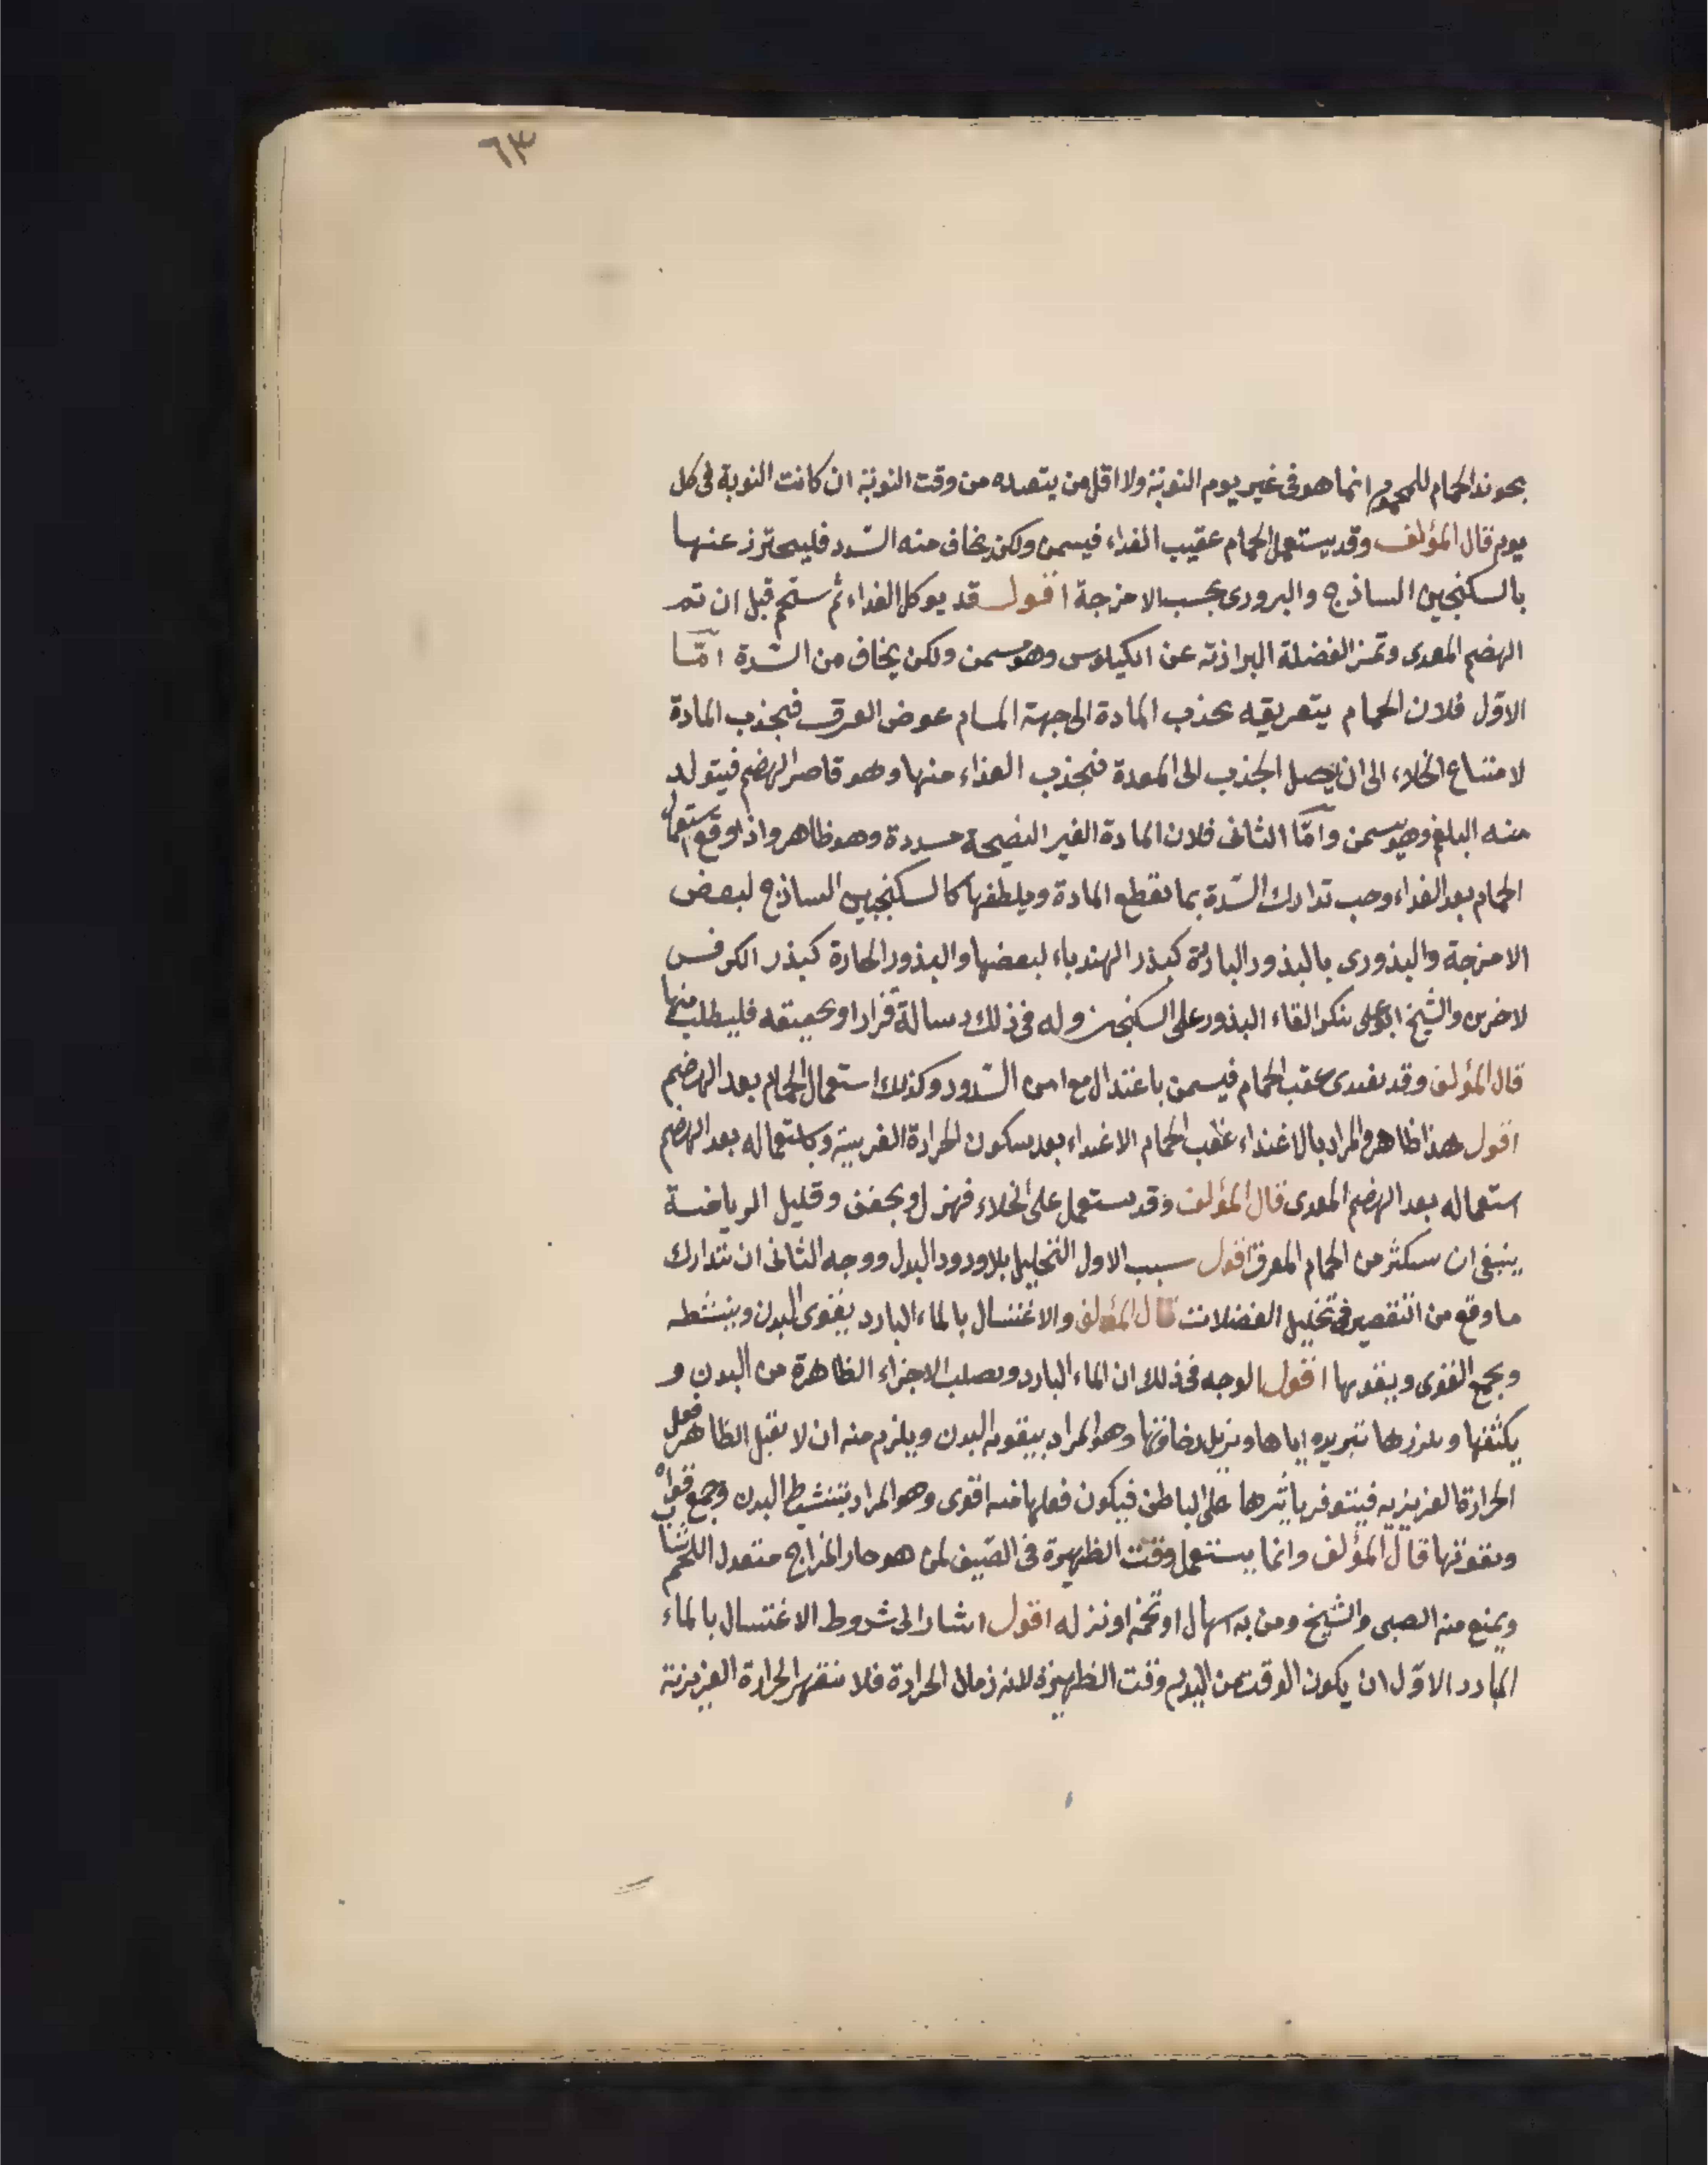 ٦٣
يجوز الحمام للمحموم انما هو فى غير يوم النوبة ولا اقل من يتصده من وقت النوبة ان كانت النوبة فى كل
يوم قال المؤلف وقد يستعمل الحمام عقيب الغداء فيسمن ولكن يخاف منه السدد فليحترز عنها
بالسكنجبين الساذج والبزورى بحسب الامزجة اقول قد يوكل الغداء ثم يستحم قبل ان تم
الهضم المعدى وتميز الفضلة البرازية عن الكيلوس وهو مسمن ولكن يخاف من السدة امّا
الاوّل فلان الحمام بتعريقه يجذب المادة الى جهة المسام عوض العرق فيجذب المادة
لامتناع الخلاء الى ان يصل الجذب الى المعدة فيجذب الغذاء منها وهو قاصر الهضم فيتولد
منه البلغم وهو يسمن وامّا الثانى فلان المادة الغير النضيجة مسددة وهو ظاهر واذا وقع استعمال
الحمام بعد الغداء وجب تدارك السدة بما يقطع المادة ويلطفها كالسكنجبين الساذج لبعض
الامزجة والبذورى بالبذور الباردة كبذر الهندباء لبعضها والبذور الحارة كبذر الكرفس
لاخرين والشيخ ابو على ينكر القاء البذور على السكنجبين وله فى ذلك رسالة فمن اراد تحقيقه فليطلب منها
قال المؤلف وقد يغتدى عقب الحمام فيسمن باعتدال مع امن السدود وكذلك استعمال الحمام بعد الهضم
اقول هذا ظاهر والمراد بالاغتذاء عقب الحمام الاغتداء بعد سكون الحرارة الغريبة وباستعماله بعد الهضم
استعماله بعد الهضم المعدى قال المؤلف وقد يستعمل على الخلاء فهزل ويجفف وقليل الرياضة
ينبغى ان يستكثر من الحمام المعرق اقول سبب الاول التحليل بلا ورود البدل ووجه الثانى ان تتدارك
ما وقع من التقصير فى تحليل الفضلات قال المؤلف والاغتسال بالماء البارد يقوى البدن وينشطه
ويجمع القوى ويقويها اقول الوجه فى ذلك ان الماء البارد يصلب الاجزاء الظاهرة من البدن و
يكثفها ويلززها تبريده اياها ويزيل رخاوتها وهو المراد بتقوية البدن ويلزم منه ان لا تقبل الظاهر فعل
الحرارة الغريزيه فيتوفر باثرها على الباطن فيكون فعلها فيه اقوى وهو المراد بتنشيط البدن وجمع قواه
وتقوتها قال المؤلف وانما يستعمل وقت الظهيرة فى الصيف لمن هو حار المزاج معتدل اللحم شابا
ويمنع منه الصبى والشيخ ومن به اسهال او تخمة او نزله اقول اشار الى شروط الاغتسال بالماء
البارد الاوّل ان يكون الوقت من اليوم وقت الظهيرة لانه زمان الحرارة فلا تنقهر الحرارة الغريزية